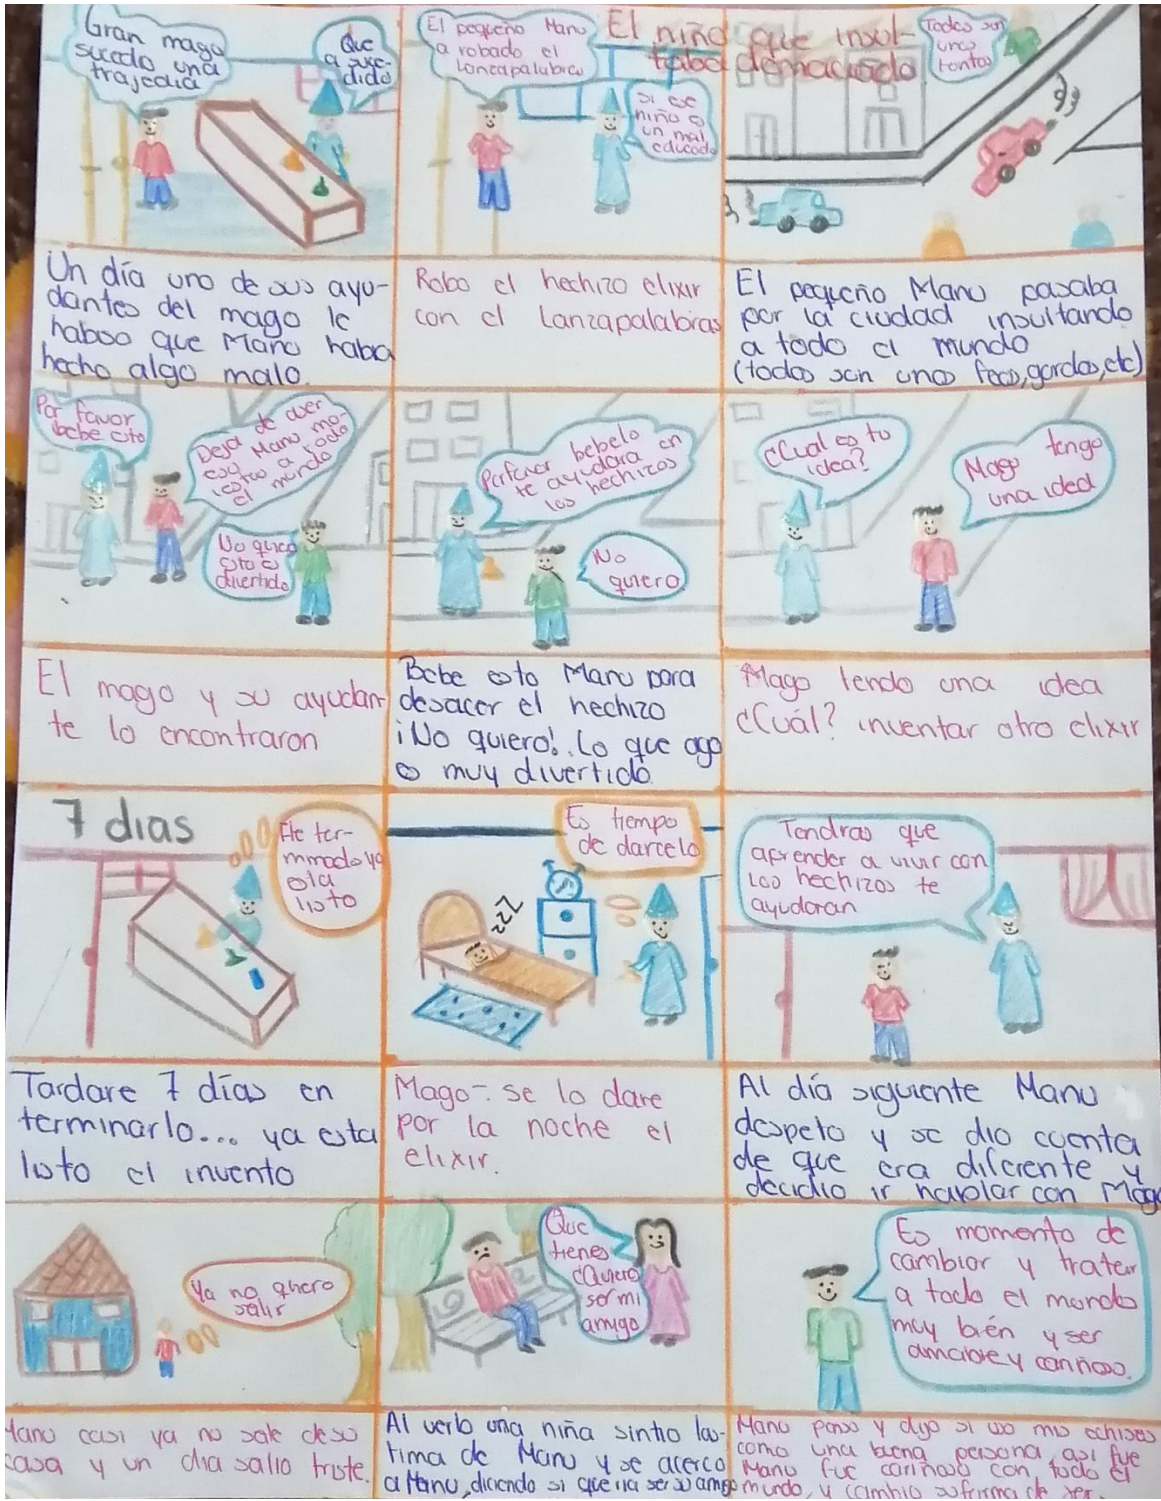 Gran mago
sucedo una
trajedia
Que
a suce-
dido
El pequeño Manu
a robado el
Lanzapalabras
Si ese
niño es
un mal
educado
El niño que insul-
taba demaciado
Todos son
unos
tontos
Un día uno de sus ayu-
dantes del mago le
habso que Manu haba
hecho algo malo.
Robo el hechizo elixir
con el Lanzapalabras
El pequeño Manu pasaba
por la ciudad insultando
a todo el mundo
(todos son unos feos, gordos, etc)
Por favor
bebe esto
Deja de ser
esy Manu mo-
lestoo a todo
el mundo
No quieo
esto es
divertido
Porfavor bebelo
te ayudara en
los hechizos
No
quiero
¿Cual es tu
idea?
Mago tengo
una idea
El mago y su ayudan-
te lo encontraron
Bebe esto Manu para
desacer el hechizo
¡No quiero!. Lo que ago
es muy divertido
Mago tendo una idea
¿Cuál? inventar otro elixir
7 dias
He ter-
minado ya
esta
listo
Es tiempo
de darcelo
Zzz
Tendras que
aprender a vivir con
los hechizos te
ayudaran
Tardare 7 días en
terminarlo... ya esta
listo el invento
Mago- se lo dare
por la noche el
elixir.
Al día siguiente Manu
despeto y se dio cuenta
de que era diferente y
decidio ir hablar con Mago
Ya no quiero
salir
Que
tienes
¿Quieres
ser mi
amigo
Es momento de
cambiar y tratar
a todo el mundo
muy bién y ser
amable y cariñoso.
Manu casi ya no sale de su
casa y un dia salio triste.
Al verlo una niña sintio las-
tima de Manu y se acerco
a Manu, diciendo si queria ser su amigo
Manu penso y dijo si uso mis echisos
como una buena persona, asi fue
Manu fue cariñoso con todo el
mundo, y cambio su forma de ser.